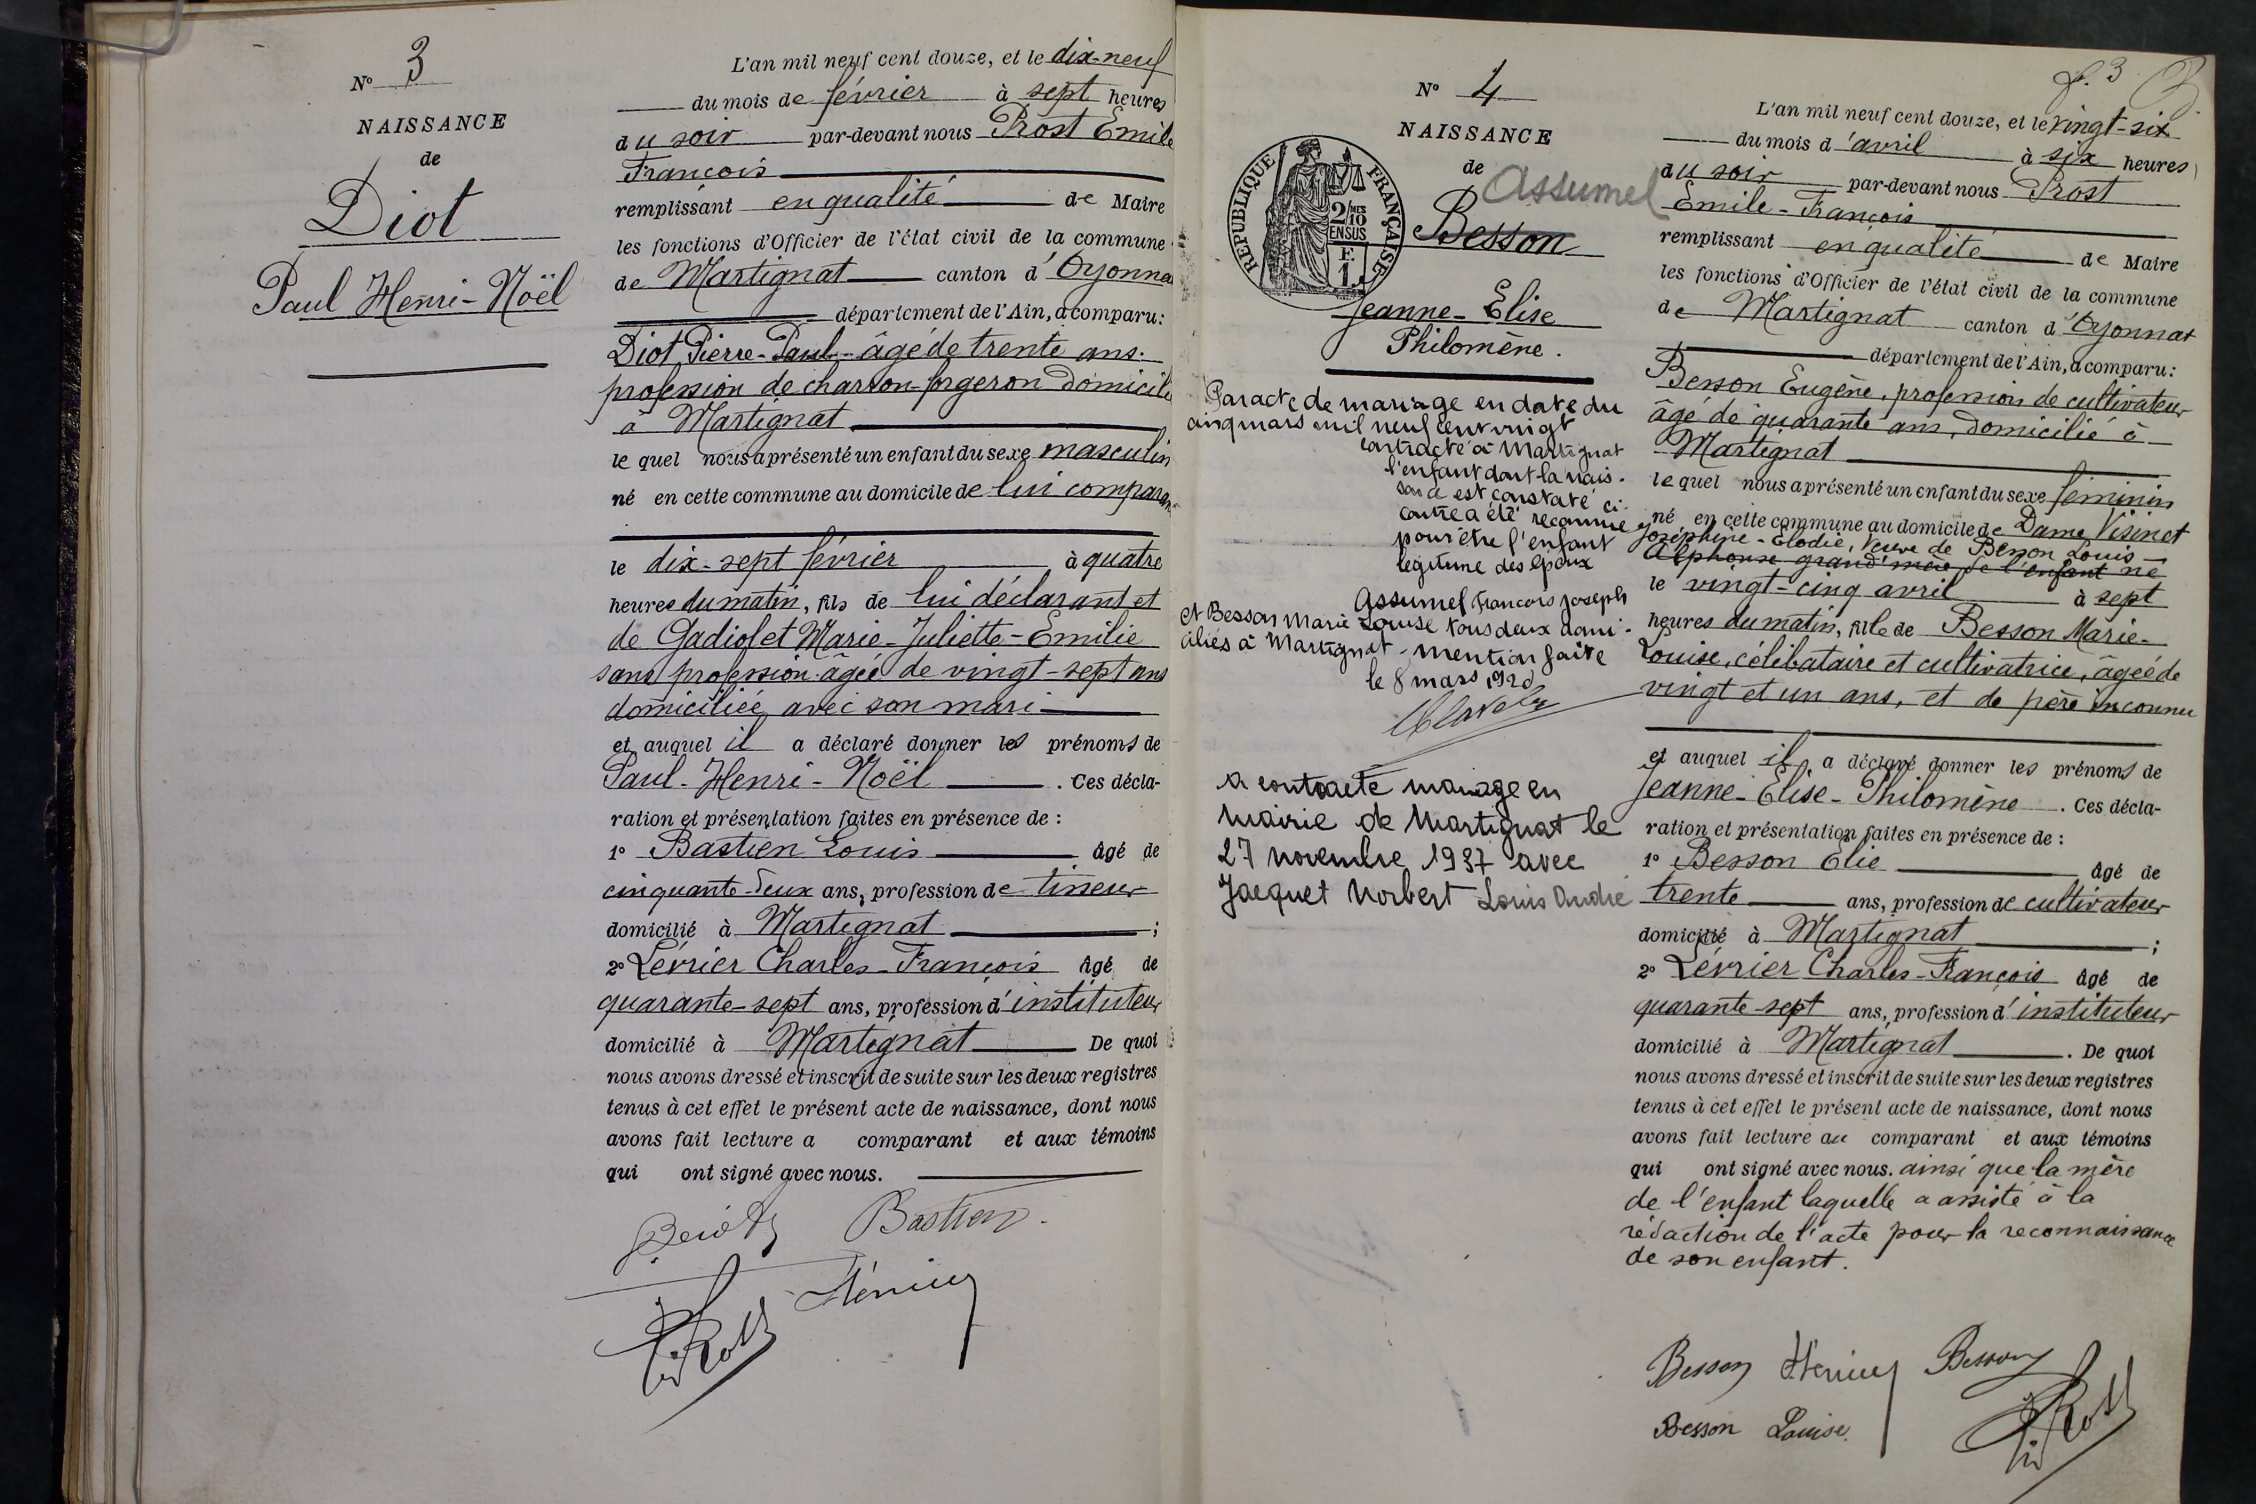 N° 3
NAISSANCE
de
Diot
Paul Henri-Noël
L'an mil neuf cent douze, et le dix-neuf
du mois de février à sept heures
du soir par-devant nous Prost Emile
François
remplissant en qualité de Maire
les fonctions d'Officier de l'état civil de la commune
de Martignat canton d'Oyonnax
département de l'Ain, a comparu:
Diot Pierre-Paul-âgé de trente ans.
profession de charron-forgeron domicilié
à Martignat
le quel nous a présenté un enfant du sexe masculin
né en cette commune au domicile de lui comparant
le dix-sept février à quatre
heures du matin, fils de lui déclarant et
de Gadiolet Marie-Juliette-Emilie
sans profession âgée de vingt-sept ans
domiciliée avec son mari
et auquel il a déclaré donner les prénoms de
Paul-Henri-Noël. Ces décla-
ration et présentation faites en présence de :
1° Bastien Louis âgé de
cinquante-deux ans, profession de tisseur
domicilié à Martignat ;
2° Lévrier Charles-François âgé de
quarante-sept ans, profession d'instituteur
domicilié à Martignat De quoi
nous avons dressé et inscrit de suite sur les deux registres
tenus à cet effet le présent acte de naissance, dont nous
avons fait lecture a comparant et aux témoins
qui ont signé avec nous.
Bastien
f. 3
N° 4
NAISSANCE
de
Assumel
Besson
Jeanne-Elise
Philomène.
REPUBLIQUE FRANÇAISE
2/10 EN SUS
F.
1
Par acte de mariage en date du
cinq mars mil neuf cent vingt
contracté à Martignat
l'enfant dont la nais-
sance est constaté ci-
contre a été reconnue
pour être l'enfant
légitime des époux
Assumel François Joseph
et Besson Marie Louise tous deux domi-
ciliés à Martignat - mention faite
le 8 mars 1920
A contracté mariage en
mairie de Martignat le
27 novembre 1937 avec
Jacquet Norbert Louis André
L'an mil neuf cent douze, et le vingt-six
du mois d'avril à six heures
du soir par-devant nous Prost
Emile-François
remplissant en qualité de Maire
les fonctions d'Officier de l'état civil de la commune
de Martignat canton d'Oyonnax
département de l'Ain, a comparu:
Besson Eugène, profession de cultivateur
âgé de quarante ans, domicilié à
Martignat
le quel nous a présenté un enfant du sexe féminin
né en cette commune au domicile de Dame Visinet
Joséphine-Elodie, veuve de Besson Louis
Alphonse grand'mère de l'enfant né
le vingt-cinq avril à sept
heures du matin, fille de Besson Marie-
Louise, célibataire et cultivatrice, âgée de
vingt et un ans, et de père inconnu
et auquel il a déclaré donner les prénoms de
Jeanne-Elise-Philomène. Ces décla-
ration et présentation faites en présence de :
1° Besson Elie âgé de
trente ans, profession de cultivateur
domicilié à Martignat ;
2° Lévrier Charles-François âgé de
quarante-sept ans, profession d'instituteur
domicilié à Martignat. De quoi
nous avons dressé et inscrit de suite sur les deux registres
tenus à cet effet le présent acte de naissance, dont nous
avons fait lecture au comparant et aux témoins
qui ont signé avec nous. ainsi que la mère
de l'enfant laquelle a assisté à la
rédaction de l'acte pour la reconnaissance
de son enfant.
Besson Besson
Besson Louise